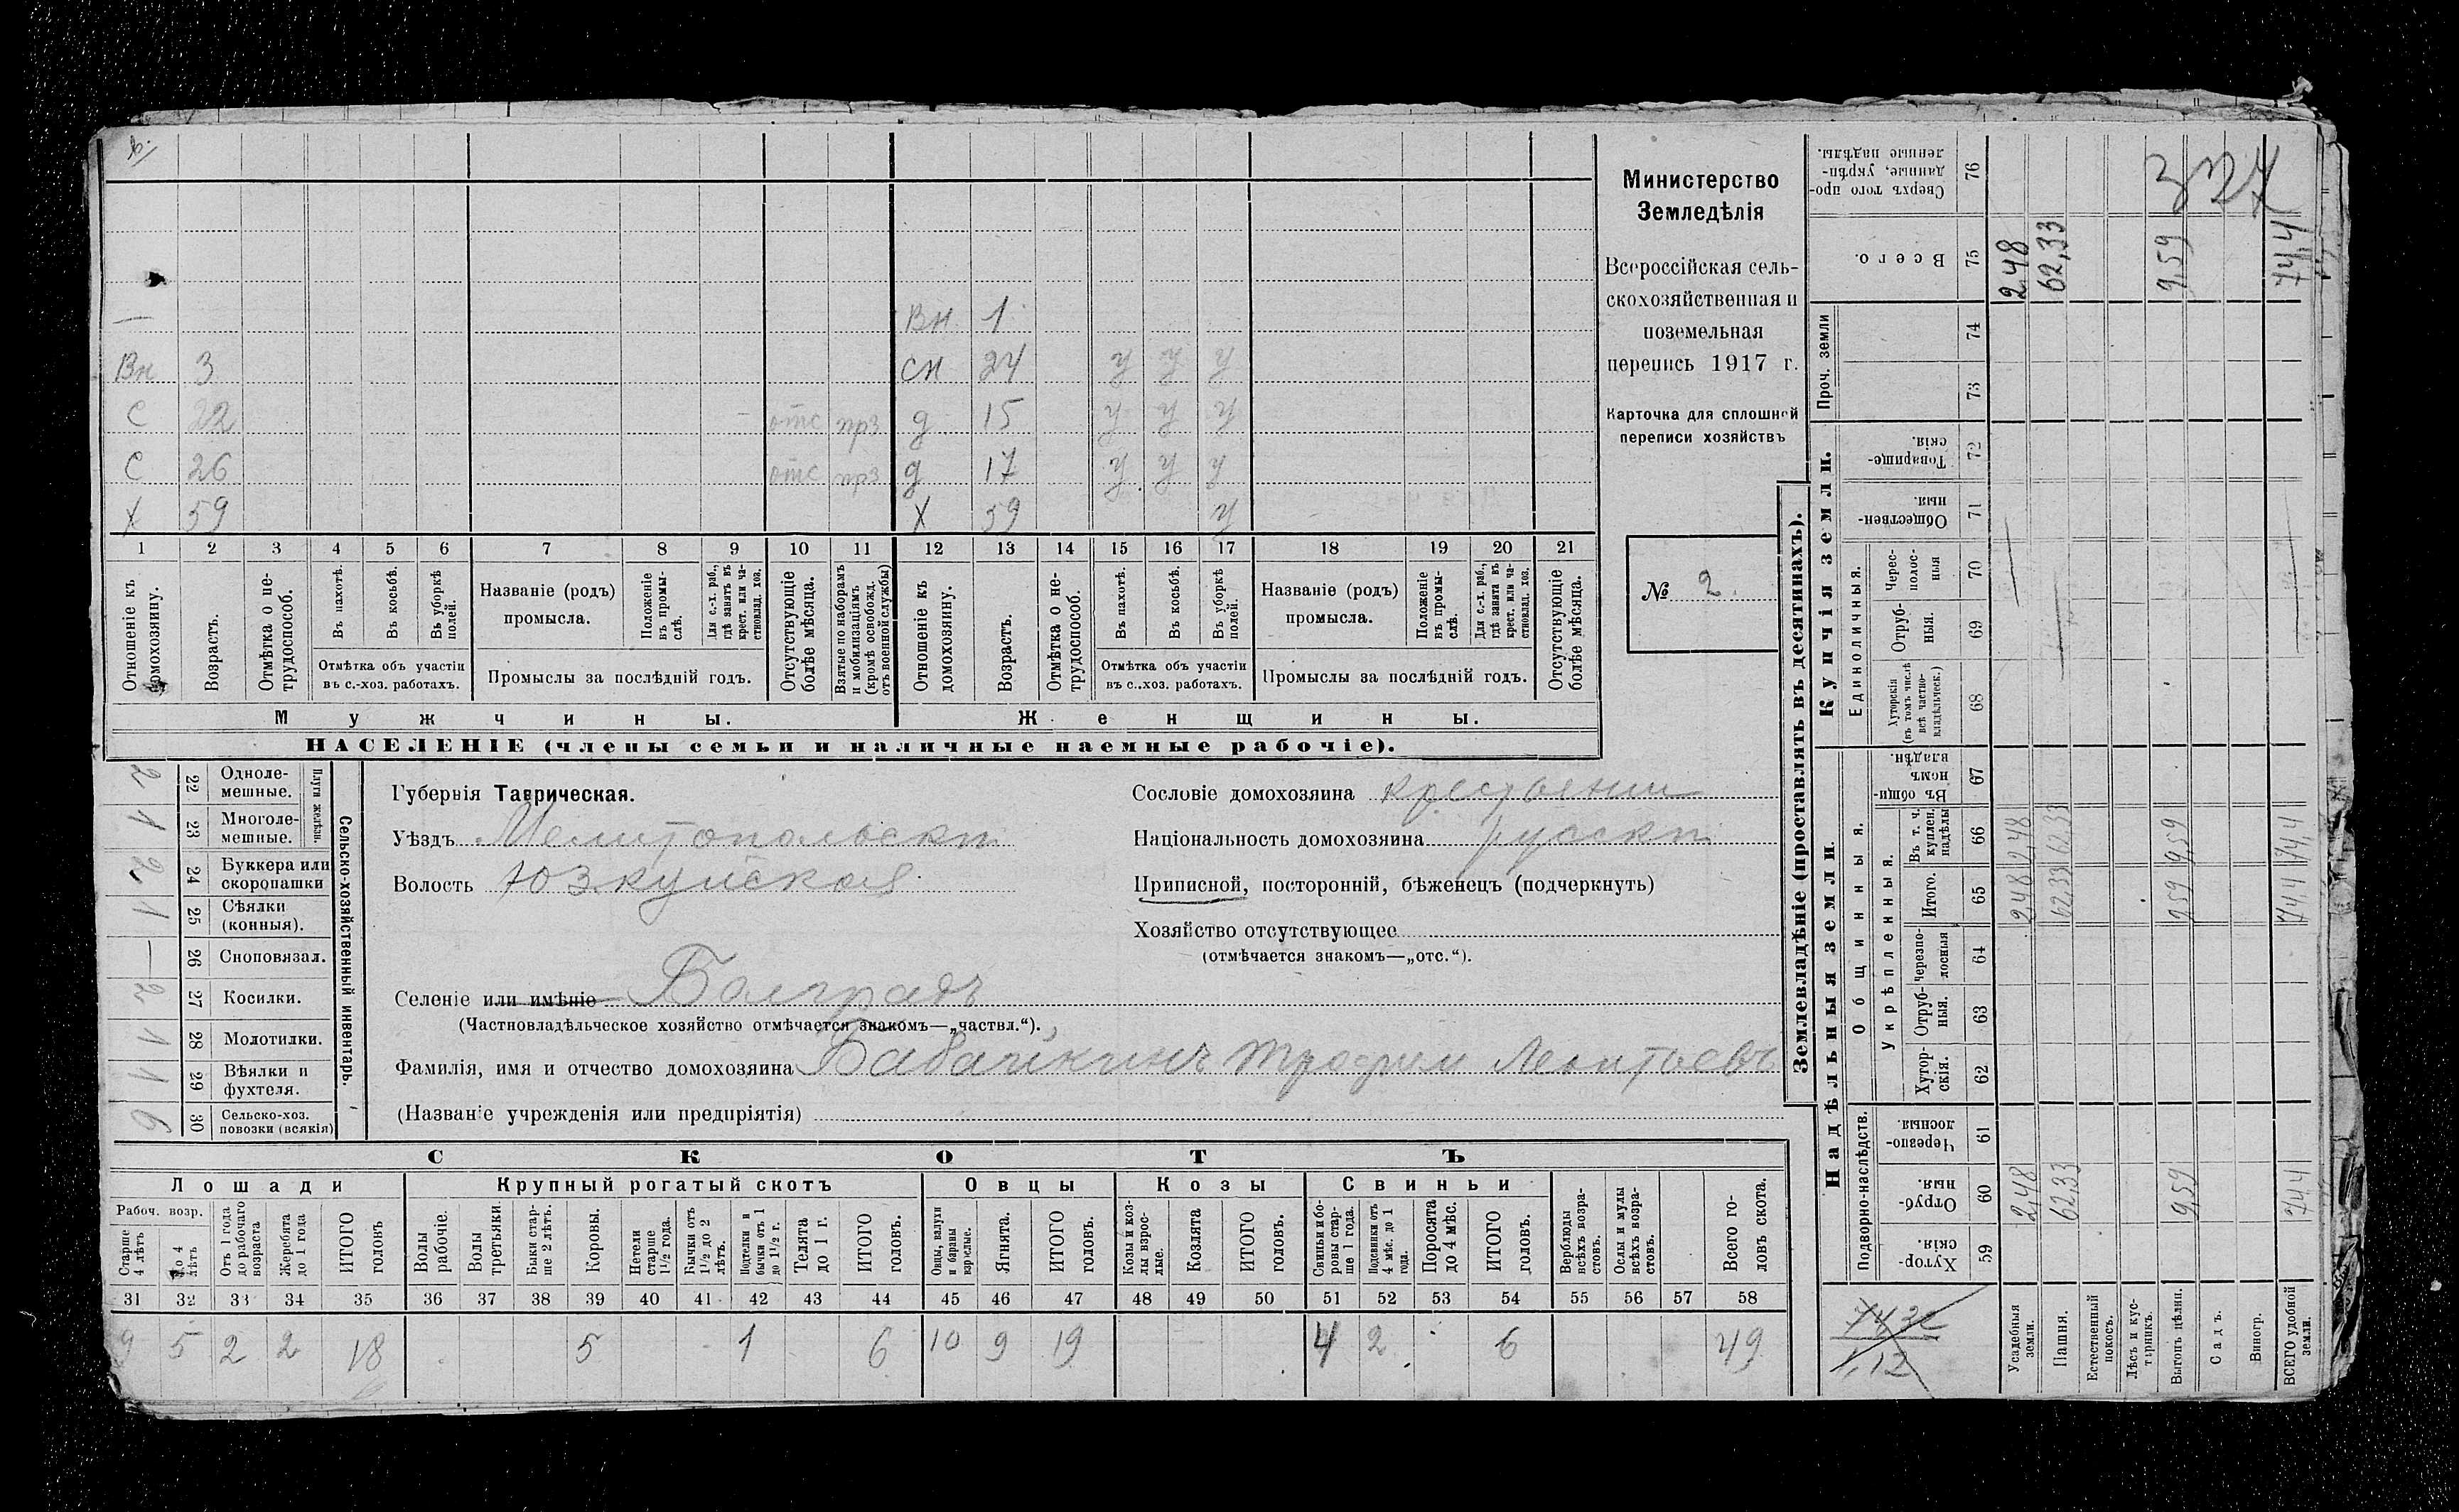 Министерство
Земледѣлія
Всероссійская сель-
скохозяйственная и
поземельная
перепись 1917 г.
Карточка для сплошной
переписи хозяйствъ
№ 2
Вн 1
Вн 3 сн 24 у у у
С 22 отс прз д 15 у у у
С 26 отс прз д 17 у у у
Х 59 Х 59 у
1 2 3 4 5 6 7 8 9 10 11 12 13 14 15 16 17 18 19 20 21
Отношеніе къ домохозяину.
Возрастъ.
Отмѣтка о не-трудоспособ.
Въ пахотѣ.
Въ косьбѣ.
Въ уборкѣ полей.
Отмѣтка объ участіи
въ с.-хоз. работахъ.
Названіе (родъ)
промысла.
Положеніе въ промы-слѣ.
Для с.-х. раб., гдѣ занятъ въ крест. или ча-стновлад. хоз.
Промыслы за послѣдній годъ.
Отсутствующіе болѣе мѣсяца.
Взятые по наборамъ и мобилизаціямъ (кромѣ освобожд. отъ военной службы)
Отношеніе къ домохозяину.
Возрастъ.
Отмѣтка о не-трудоспособ.
Въ пахотѣ.
Въ косьбѣ.
Въ уборкѣ полей.
Отмѣтка объ участіи
въ с.-хоз. работахъ.
Названіе (родъ)
промысла.
Положеніе въ промы-слѣ.
Для с.-х. раб., гдѣ занята въ крест. или ча-стновлад. хоз.
Промыслы за послѣдній годъ.
Отсутствующіе болѣе мѣсяца.
Мужчины. Женщины.
НАСЕЛЕНІЕ (члены семьи и наличные наемные рабочіе).
Сельско-хозяйственный инвентарь.
Плуги желѣзн.
2 22 Одноле-мешные.
1 23 Многоле-мешные.
2 24 Буккера или скоропашки
1 25 Сѣялки (конныя).
— 26 Сноповязал.
2 27 Косилки.
1 28 Молотилки.
1 29 Вѣялки и фухтеля.
6 30 Сельско-хоз. повозки (всякія)
Губернія Таврическая.
Уѣздъ Мелитопольски
Волость Юзкуйская
Селеніе или имѣніе Болградъ
(Частновладѣльческое хозяйство отмѣчается знакомъ—„частвл.“).
Фамилія, имя и отчество домохозяина Бабачкинъ Трофим Леонтьевъ
(Названіе учрежденія или предпріятія)
Сословіе домохозяина крестьянин
Національность домохозяина руски
Приписной, посторонній, бѣженецъ (подчеркнуть)
Хозяйство отсутствующее
(отмѣчается знакомъ—„отс.“).
СКОТЪ
Лошади Крупный рогатый скотъ Овцы Козы Свиньи
Рабоч. возр.
Старше 4 лѣтъ
До 4 лѣтъ
Отъ 1 года до рабочаго возраста
Жеребята до 1 года
ИТОГО головъ
Волы рабочіе.
Волы третьяки.
Быки стар-ше 2 лѣтъ.
Коровы.
Нетели старше 1½ года.
Бычки отъ 1½ до 2 лѣтъ.
Подтелки и бычки отъ 1 до 1½ г.
Телята до 1 г.
ИТОГО головъ.
Овцы, валухи и бараны взрослые.
Ягнята.
ИТОГО головъ.
Козы и коз-лы взрос-лые.
Козлята
ИТОГО головъ.
Свиньи и бо-ровы стар-ше 1 года.
Подсвинки отъ 4 мѣс. до 1 года.
Поросята до 4 мѣс.
ИТОГО головъ.
Верблюды всѣхъ возра-стовъ.
Ослы и мулы всѣхъ возра-стовъ.
Всего го-ловъ скота.
31 32 33 34 35 36 37 38 39 40 41 42 43 44 45 46 47 48 49 50 51 52 53 54 55 56 57 58
9 5 2 2 18 5 1 6 10 9 19 4 2 6 49
Землевладѣніе (проставлять въ десятинахъ).
Надѣльныя земли.
Купчія земли.
Проч. земли
Подворно-наслѣдств.
Общинныя.
Укрѣпленныя.
Единоличныя.
Хутор-скія 59
Отруб-ныя. 60
Черезпо-лосныя. 61
Хутор-скія. 62
Отруб-ныя. 63
Черезпо-лосныя 64
Итого. 65
Въ т. ч. куплен. надѣлы 66
Въ общин-номъ владѣн. 67
Хуторскія (въ томъ числѣ всѣ частно-владѣльческ.) 68
Отруб-ныя. 69
Черес-полос-ныя 70
Обществен-ныя 71
Товарище-скія. 72
73
74
Всего. 75
Сверхъ того про-данные, укрѣп-ленные надѣлы. 76
Усадебныя земли. 2,48 2,48 2,48 2,48
Пашня. 62,33 62,33 62,33 62,33
Естественный покосъ.
Лѣсъ и кус-тарникъ.
Выгонъ цѣлин. 9,59 9,59 9,59 9,59
Садъ.
Виногр.
ВСЕГО удобной земли. 74,4 74,4 74,4 74,4
1,12